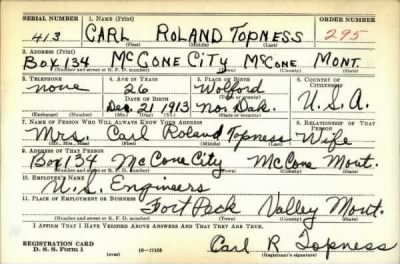 SERIAL NUMBER 1. NAME (Print) ORDER NUMBER
413 CARL ROLAND TOPNESS 295
(First) (Middle) (Last)
2. ADDRESS (Print)
BOX 134 MCCONE CITY MCCONE MONT.
(Number and street or R. F. D. number) (Town) (County) (State)
3. TELEPHONE 4. AGE IN YEARS 5. PLACE OF BIRTH 6. COUNTRY OF CITIZENSHIP
none 26 Wolford U.S.A.
DATE OF BIRTH
Dec 21 1913 Nor. Dak.
(Exchange) (Number) (Mo.) (Day) (Yr.) (State or country)
7. NAME OF PERSON WHO WILL ALWAYS KNOW YOUR ADDRESS 8. RELATIONSHIP OF THAT PERSON
Mrs. Carl Roland Topness Wife
(Mr., Mrs., Miss) (First) (Middle) (Last)
9. ADDRESS OF THAT PERSON
Box 134 McCone City McCone Mont.
(Number and street or R. F. D. number) (Town) (County) (State)
10. EMPLOYER'S NAME
U.S. Engineers
11. PLACE OF EMPLOYMENT OR BUSINESS
Fort Peck Valley Mont.
(Number and street or R. F. D. number) (Town) (County) (State)
I AFFIRM THAT I HAVE VERIFIED ABOVE ANSWERS AND THAT THEY ARE TRUE.
REGISTRATION CARD
D. S. S. Form 1 (over) 16—17105 Carl R Topness
(Registrant's signature)